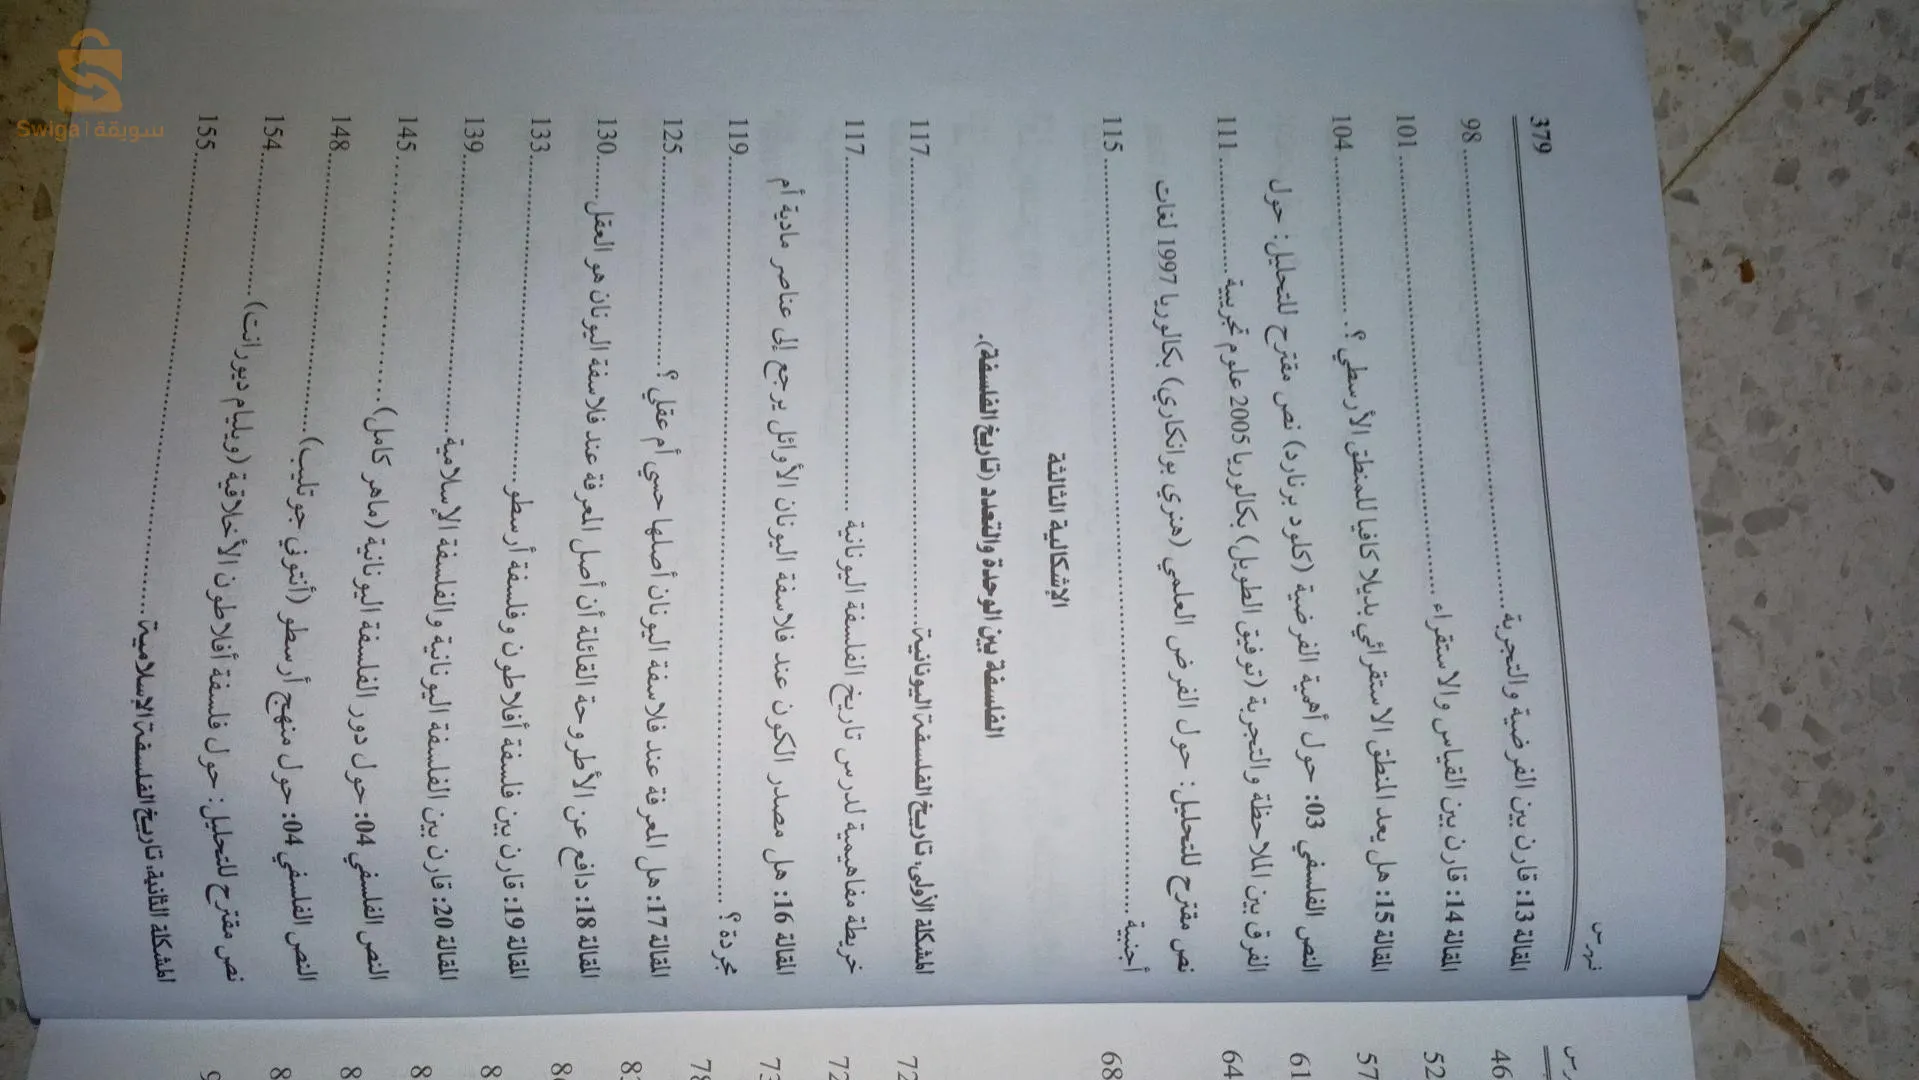 فهرس
379
المقالة 13: قارن بين الفرضية والتجربة......98
المقالة 14: قارن بين القياس والاستقراء......101
المقالة 15: هل يعد المنطق الاستقرائي بديلا كافيا للمنطق الأرسطي؟......104
النص الفلسفي 03: حول أهمية الفرضية (كلود برنارد) نص مقترح للتحليل: حول
الفرق بين الملاحظة والتجربة (توفيق الطويل) بكالوريا 2005 علوم تجريبية......111
نص مقترح للتحليل: حول الفرض العلمي (هنري بوانكاري) بكالوريا 1997 لغات
أجنبية......115
الإشكالية الثالثة
الفلسفة بين الوحدة والتعدد (تاريخ الفلسفة).
المشكلة الأولى: تاريخ الفلسفة اليونانية......117
خريطة مفاهيمية لدرس تاريخ الفلسفة اليونانية......117
المقالة 16: هل مصدر الكون عند فلاسفة اليونان الأوائل يرجع إلى عناصر مادية أم
مجردة؟......119
المقالة 17: هل المعرفة عند فلاسفة اليونان أصلها حسي أم عقلي؟......125
المقالة 18: دافع عن الأطروحة القائلة أن أصل المعرفة عند فلاسفة اليونان هو العقل......130
المقالة 19: قارن بين فلسفة أفلاطون وفلسفة أرسطو......133
المقالة 20: قارن بين الفلسفة اليونانية والفلسفة الإسلامية......139
النص الفلسفي 04: حول دور الفلسفة اليونانية (ماهر كامل)......145
النص الفلسفي 04: حول منهج أرسطو (أنتوني جوتليب)......148
نص مقترح للتحليل: حول فلسفة أفلاطون الأخلاقية (ويليام ديورانت)......154
المشكلة الثانية: تاريخ الفلسفة الإسلامية......155
46
52
57
61
64
68
72
72
73
78
Swiga سويقة